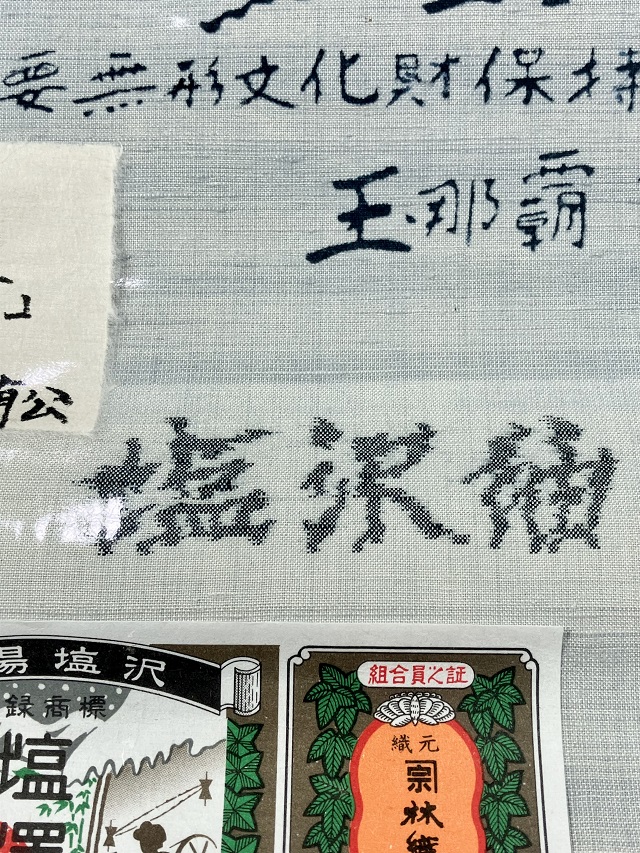 要無形文化財保持
玉那覇
塩沢紬
場塩沢
録商標
塩
澤
組合員之証
織元
宗林織